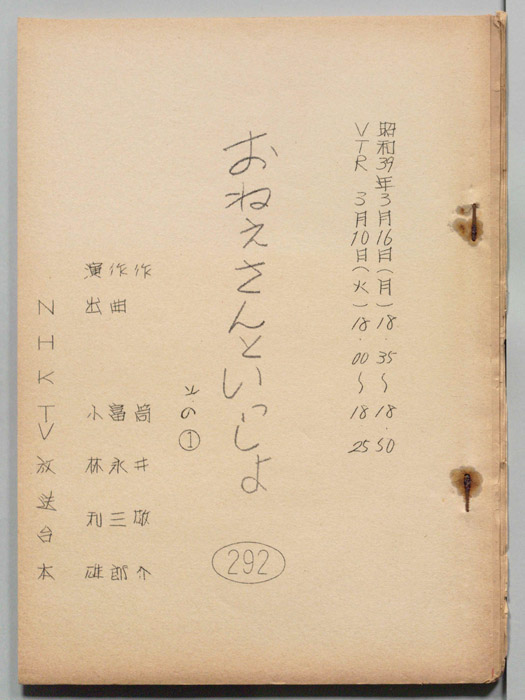 昭和39年3月16日(月)18.35〜18.50
VTR 3月10日(火)18.00〜18.25
おねえさんといっしょ
その①
292
作 筒井敬介
作曲 冨永三郎
演出 小林利雄
NHKTV放送台本